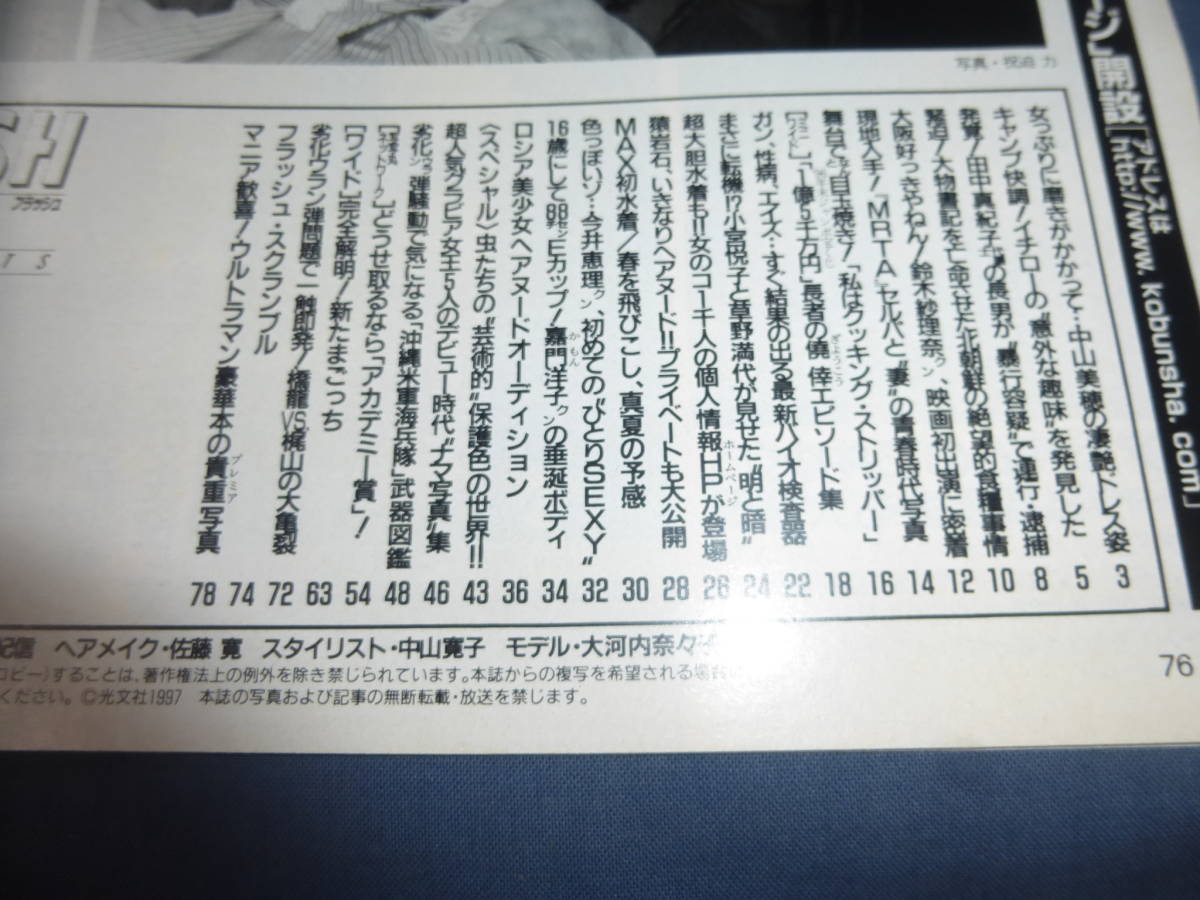 ージ」開設[アドレスは
http://www.kobunsha.com]
写真・祝迫 力
SH
フラッシュ
女っぷりに磨きがかかって…中山美穂の凄艶ドレス姿 3
キャンプ快調!イチローの“意外な趣味”を発見した 5
発覚!田中真紀子の長男が“暴行容疑”で連行・逮捕 8
緊迫!大物書記を亡命させた北朝鮮の絶望的食糧事情 10
大阪好っきゃねん!鈴木紗理奈クン、映画初出演に密着 12
現地入手!「MRTA」セルパと“妻”の青春時代写真 14
舞台で目玉焼き!「私はクッキング・ストリッパー」 16
[ミニワイド]「1億5千万円」長者の僥倖エピソード集 18
ガン、性病、エイズ…すぐ結果の出る最新バイオ検査器 22
まさに転機!?小宮悦子と草野満代が見せた“明と暗” 24
超大胆水着も!!女のコ一千人の個人情報HPが登場 26
猿岩石、いきなりヘアヌード!!プライベートも大公開 28
MAX初水着!春を飛びこし、真夏の予感 30
色っぽいゾ…今井恵理クン、初めての“ひとりSEXY” 32
34
36
〈スペシャル〉虫たちの“芸術的”保護色の世界!! 43
超人気グラビア女王5人のデビュー時代“ナマ写真”集 46
劣化ウラン弾騒動で気になる「沖縄米軍海兵隊」武器図鑑 48
どうせ取るなら「アカデミー賞」! 54
[ワイド]完全解明!新たまごっち 63
劣化ウラン弾問題で一触即発!橋龍VS.梶山の大亀裂 72
フラッシュ・スクランブル 74
マニア歓喜!ウルトラマン豪華本の貴重写真 78
ヘアメイク・佐藤 寛 スタイリスト・中山寛子 モデル・大河内奈々
コピー)することは、著作権法上の例外を除き禁じられています。本誌からの複写を希望される場合
ください。©光文社1997 本誌の写真および記事の無断転載・放送を禁じます。
76